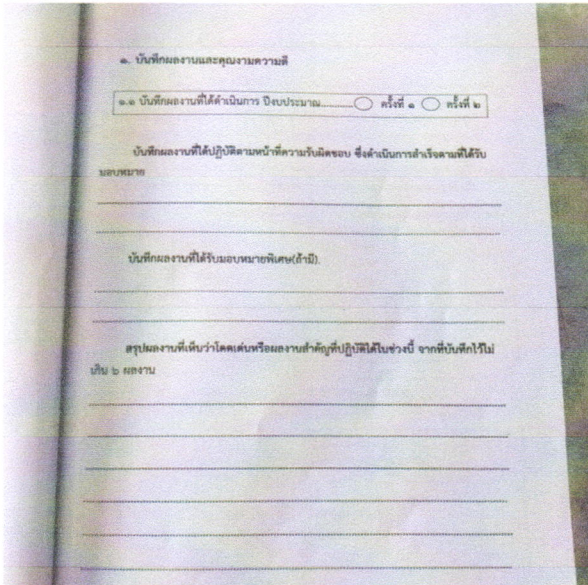 ๑. บันทึกผลงานและคุณงามความดี
๑.๑ บันทึกผลงานที่ได้ดำเนินการ ปีงบประมาณ............ ◯ ครั้งที่ ๑ ◯ ครั้งที่ ๒
บันทึกผลงานที่ได้ปฏิบัติตามหน้าที่ความรับผิดชอบ ซึ่งดำเนินการสำเร็จตามที่ได้รับ
มอบหมาย
บันทึกผลงานที่ได้รับมอบหมายพิเศษ(ถ้ามี).
สรุปผลงานที่เห็นว่าโดดเด่นหรือผลงานสำคัญที่ปฏิบัติได้ในช่วงนี้ จากที่บันทึกไว้ไม่
เกิน ๖ ผลงาน